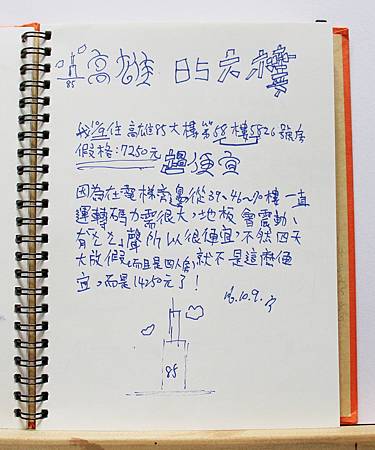 85 高雄 85大樓
我住高雄85大樓第58樓5826號房
假格:7250元 超便宜
因為在電梯旁邊從39、46~70樓一直
運轉碼力需很大,地板會震動、
有ㄥㄥ聲所以很便宜,不然四天
大放假(而且是四人房)就不是這麼便
宜,而是14250元了!
16.10.9.
85